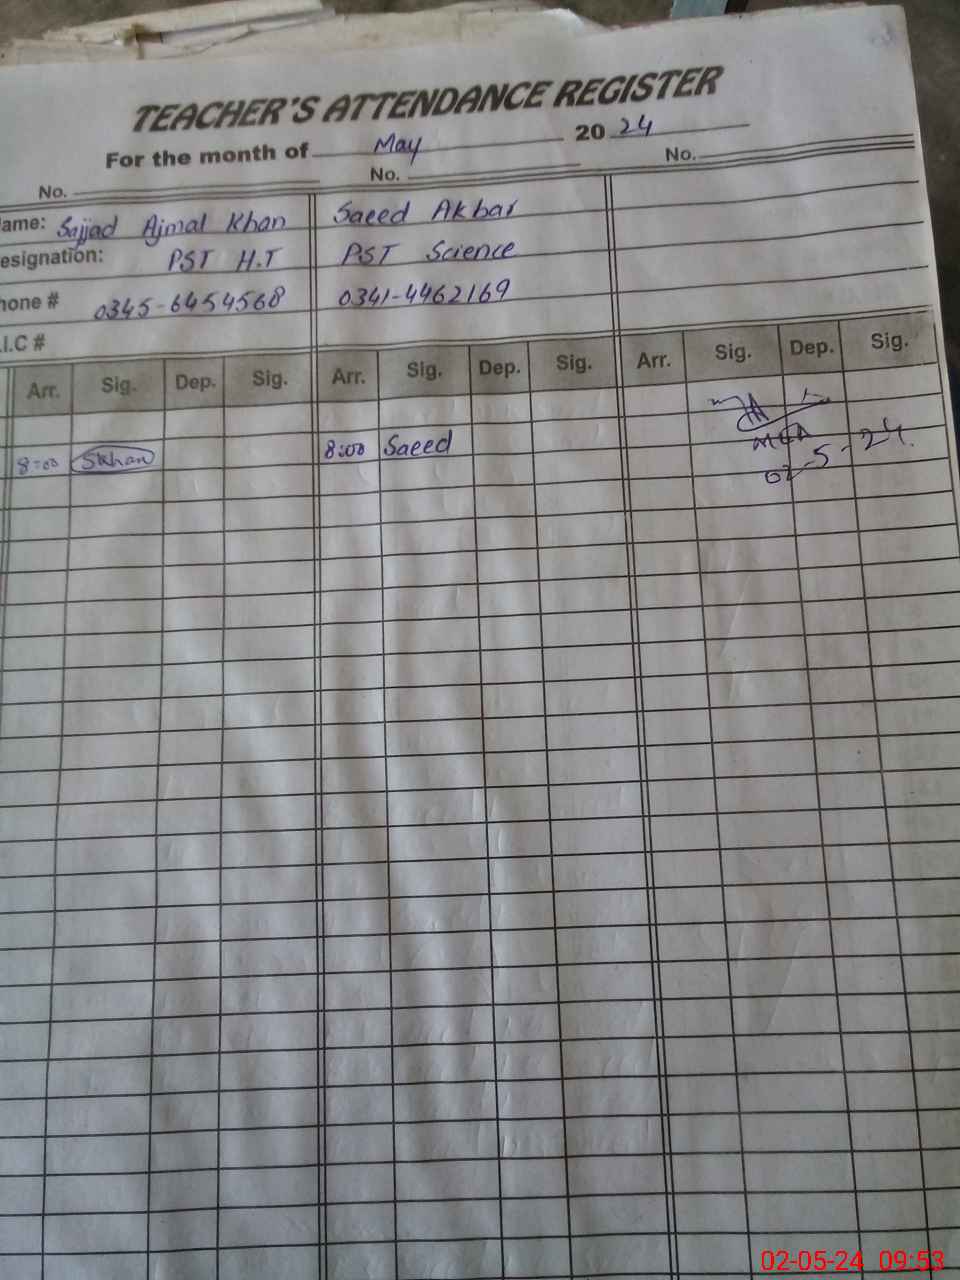 TEACHER'S ATTENDANCE REGISTER
For the month of May 2024
No. No. No.
ame: Sajjad Ajmal Khan Saeed Akbar
esignation: PST H.T PST Science
hone # 0345-6454568 0341-4462169
.I.C #
Arr. Sig. Dep. Sig. Arr. Sig. Dep. Sig. Arr. Sig. Dep. Sig.
8:00 SKhan 8:00 Saeed
MEA
02-5-24.
02-05-24 09:53